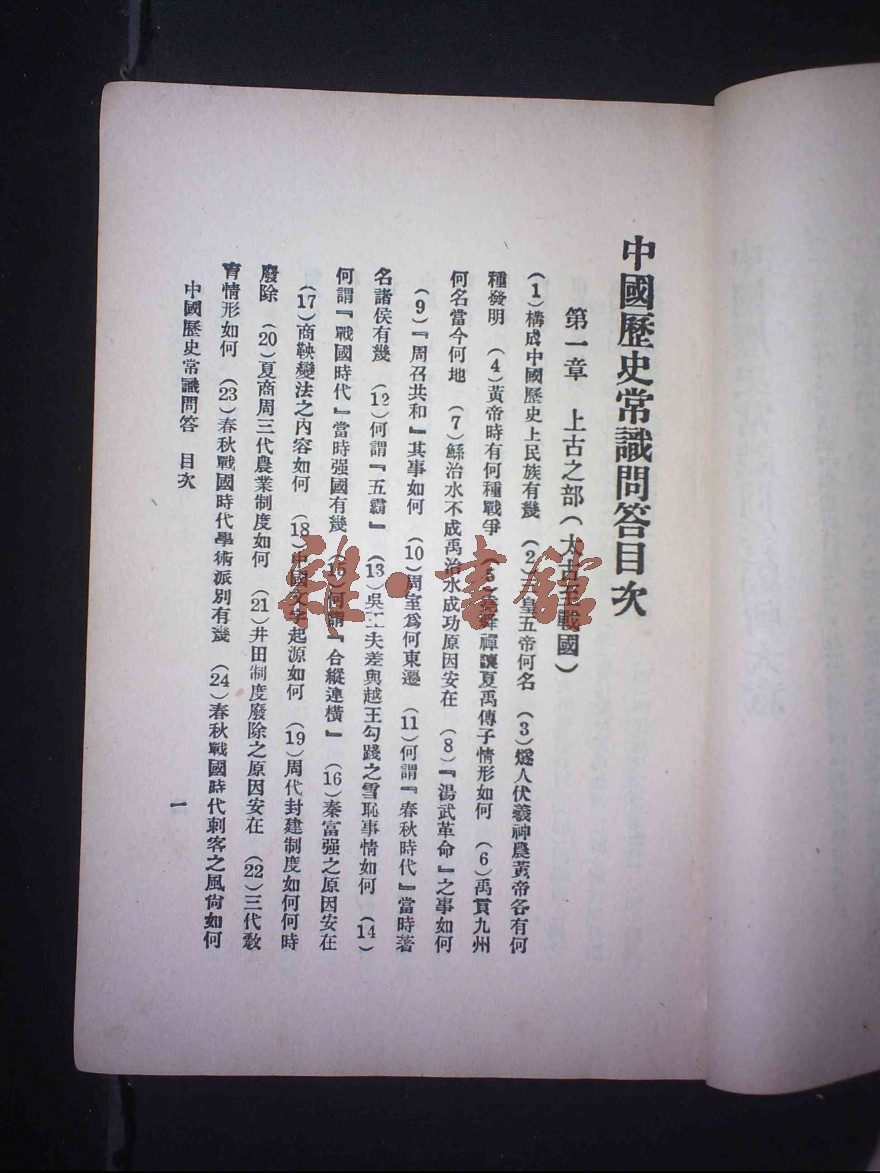 中國歷史常識問答目次
第一章 上古之部(太古至戰國)
(1)構成中國歷史上民族有幾 (2)三皇五帝何名 (3)燧人伏羲神農黃帝各有何
種發明 (4)黃帝時有何種戰爭 (5)堯舜禪讓夏禹傳子情形如何 (6)禹貢九州
何名當今何地 (7)鯀治水不成禹治水成功原因安在 (8)『湯武革命』之事如何
(9)『周召共和』其事如何 (10)周室爲何東遷 (11)何謂『春秋時代』當時著
名諸侯有幾 (12)何謂『五霸』 (13)吳王夫差與越王勾踐之雪恥事情如何 (14)
何謂『戰國時代』當時强國有幾 (15)何謂『合縱連橫』 (16)秦富强之原因安在
(17)商鞅變法之內容如何 (18)中國文字起源如何 (19)周代封建制度如何何時
廢除 (20)夏商周三代農業制度如何 (21)井田制度廢除之原因安在 (22)三代敎
育情形如何 (23)春秋戰國時代學術派別有幾 (24)春秋戰國時代刺客之風尙如何
中國歷史常識問答 目次
一
雜·書館